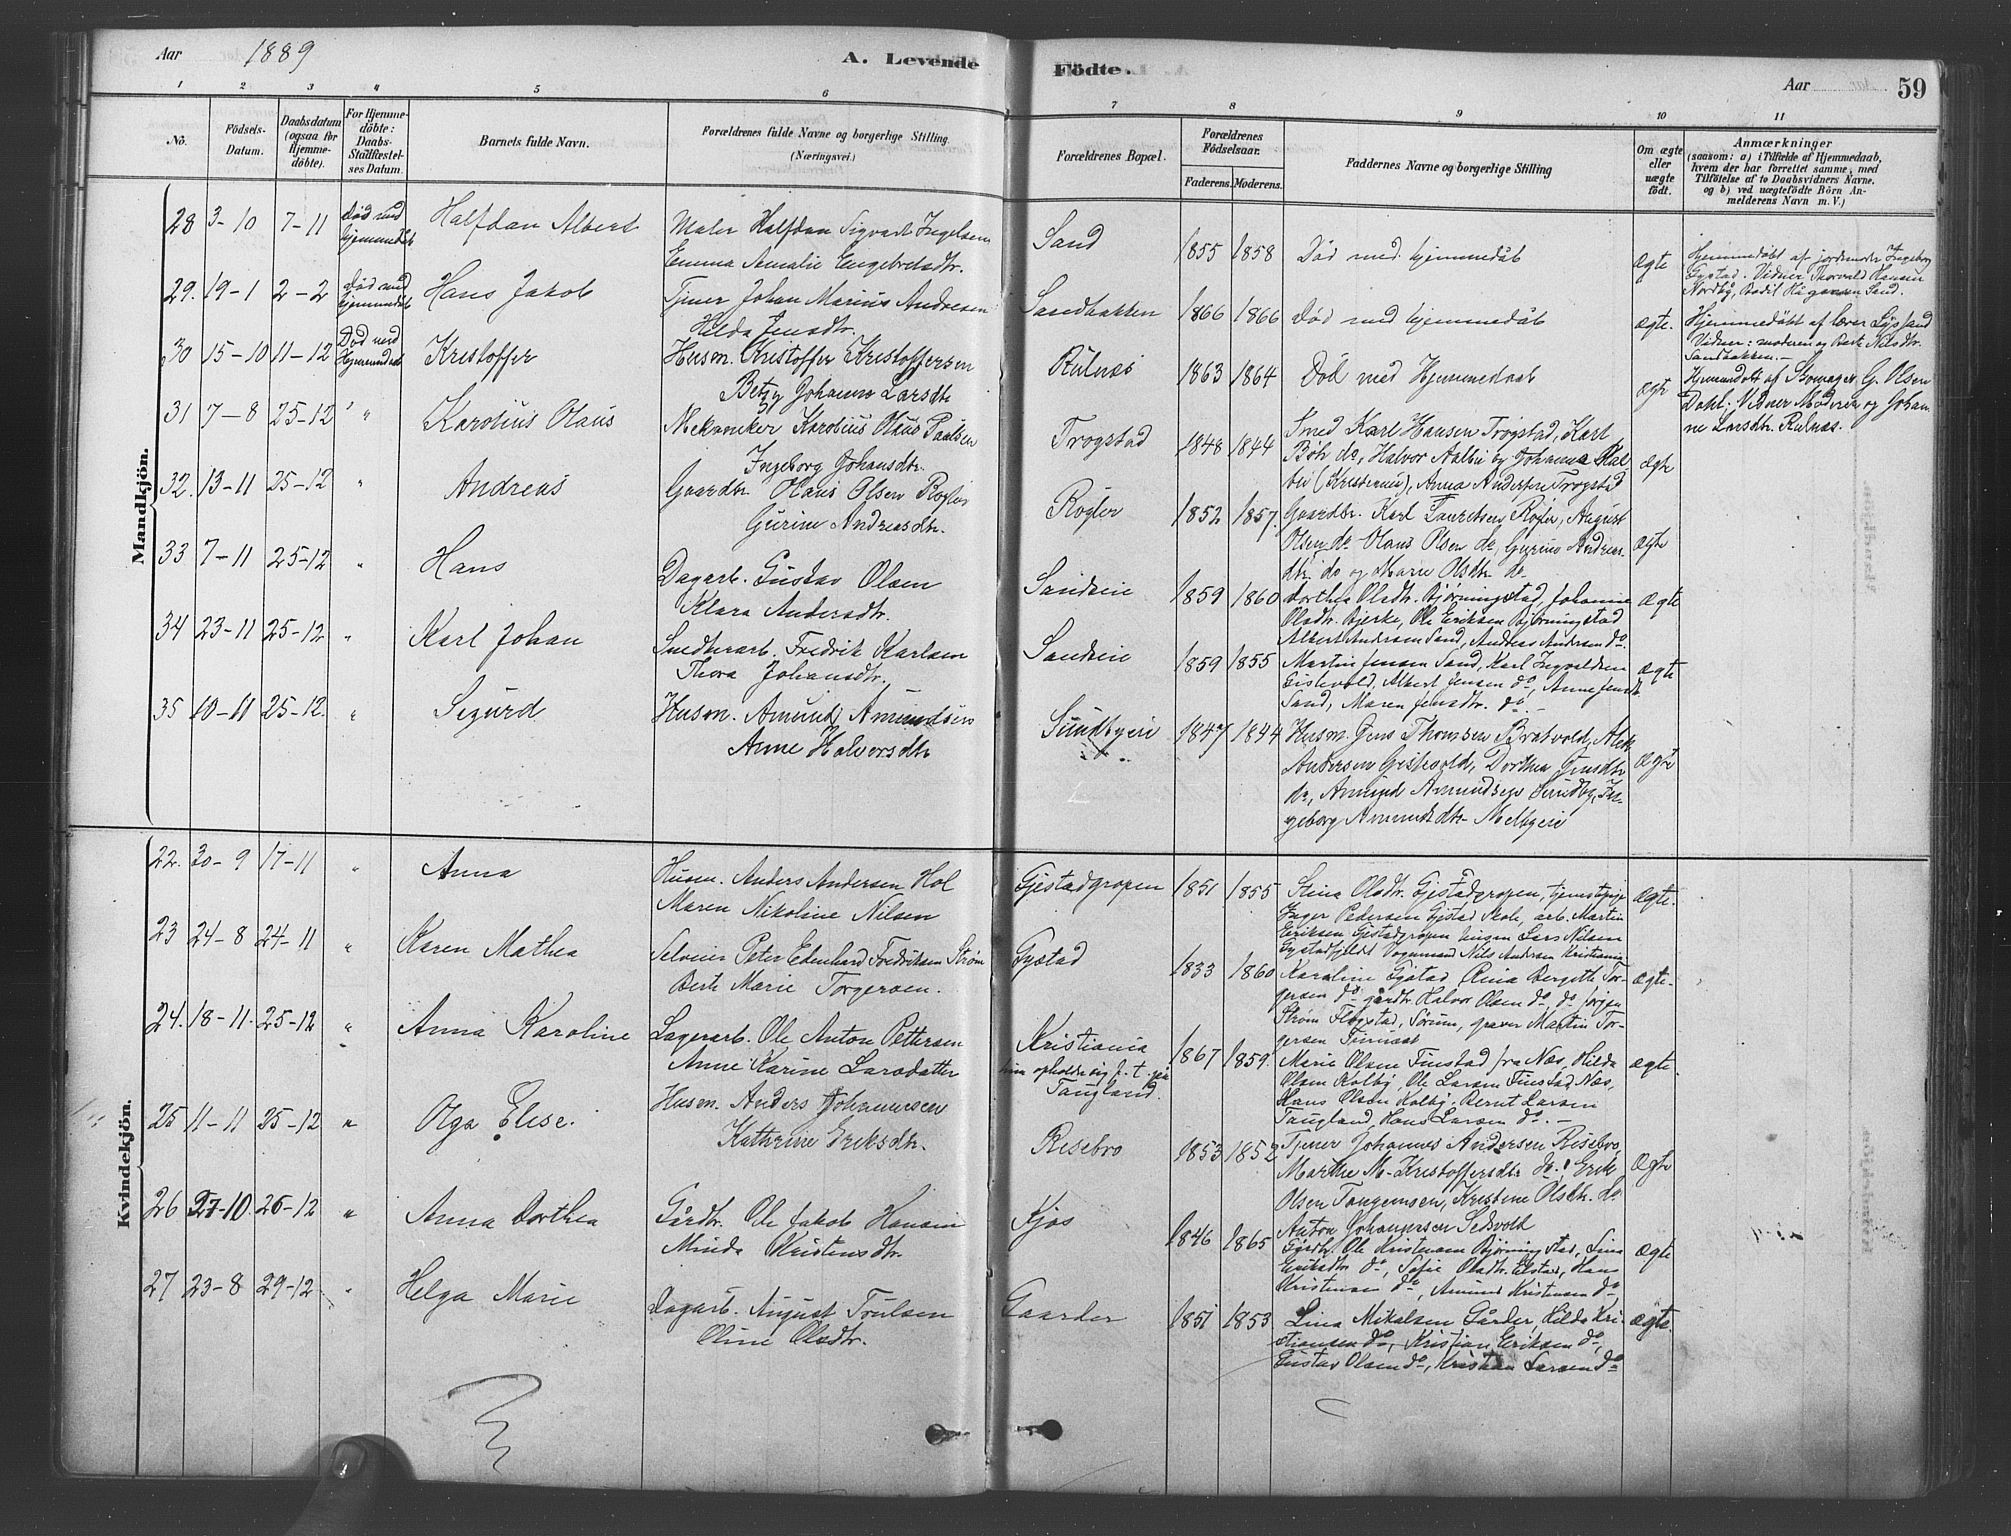 Aar 1889
A. Levende Födte.
Aar 59
1 2 3 4 5 6 7 8 9 10 11
No.
Födsels-Datum.
Daabsdatum (ogsaa for Hjemmedöbte).
For Hjemmedöbte: Daabs-Stadfæstelses Datum.
Barnets fulde Navn.
Forældrenes fulde Navne og borgerlige Stilling
(Næringsvei.)
Forældrenes Bopæl.
Forældrenes Födselsaar.
Faderens. Moderens.
Faddernes Navne og borgerlige Stilling
Om ægte eller uægte født.
Anmærkninger
(saasom: a) i Tilfælde af Hjemmedaab, hvem der har forrettet samme, med Tilföielse af to Daabsvidners Navne, og b) ved uægtefödte Börn Anmelderens Navn m. V.)
Mandkjön.
28 3-10 7-11 Död med hjemmedåb Halfdan Albert Maler Halfdan Sigvart Ingelsen
Emma Amalie Engebretsdtr. Sand 1855 1858 Död med hjemmedåb ægte Hjemmedöbt af jordemoder Ingeborg
Gystad. Vidner Thorvald Hansen
Nordby, Bodil Sand.
29. 19-1 2-2 Död med hjemmedåb Hans Jakob Tjener Johan Marius Andresen
Hilda Jensdtr. Sandbakken 1866 1866 Död med hjemmedåb ægte. Hjemmedöbt af lærer Lysand
Vidner: moderen og Berte Nilsdtr.
Sandbakken.-
30 15-10 11-12 Död med Hjemmedaab Kristoffer Husm. Kristoffer Kristoffersen
Betzy Johanne Larsdtr Rulnæs 1863 1864 Död med Hjemmedaab ægte Hjemmedöbt af G. Olsen
Dahl. Vidner Moderen og Johanne Larsdtr. Rulnæs.
31 7-8 25-12 " Karolius Olaus Mekaniker Karolius Olaus Paulsen
Ingeborg Johansdtr. Trogstad 1848 1844 Smed Karl Hansen Trogstad, Karl
Böhn do, Halvor Aalbu og Johanne (Kristiania), Anna Andersen Trogstad ægte
32. 13-11 25-12 " Andreas Gaardbr. Olaus Olsen Rogler
Gurine Andreasdtr. Rogler 1852 1857 Gaardbr. Karl Lauritsen Rogler, August
Olsen do Olaus Olsen do, Gurine Andreasdtr. do og Marie Olsdtr do ægte
33 7-11 25-12 " Hans Dagarb. Gustav Olsen
Klara Andersdtr. Sandseie 1859 1860 Dorthea Olsdtr. Bjørningstad, Johanne
Olsdtr. Bjerke, Ole Eriksen Bjørningstad
Albert Andersen Sand, Andreas Andersen do. ægte
34 23-11 25-12 " Karl Johan Snedkerarb. Fredrik Karlsen
Thora Johansdtr. Sandseie 1859 1855 Martin Jensen Sand, Karl Ingvaldsen
Gistevold, Albert Jensen do, Anne Jensdtr
Sand, Maren Jensdtr. do.- ægte
35 10-11 25-12. " Sigurd Husm. Amund Amundsen
Anne Halvorsdtr Sundbyeie 1847 1844 Husm. Jens Thomsen Bratvold,
Andersen Gistevold, Dorthea Jensdtr
do, Amund Amundsen Sundby, Ingeborg Amundsdtr. Melbyeie ægte
Kvindekjön.
22. 30-9 17-11 " Anna Husm. Anders Andersen Hol
Maren Nikoline Nilsen Gjestadgropen 1851 1855 Stina Olsdtr. Gjestadgropen, tjenestepige
Inger Pedersen Gjstad Skole, arb. Martin
Eriksen Gjestadgropen Lars Nilsen
Gystadfjeldet Vognmand Nils Andersen Kristiania ægte.
23 24-8 24-11 " Karen Mathea Selveier Peter Edvard Fredriksen Strøm
Berte Marie Torgersen. Gystad 1833 1860 Karoline Gystad, Rina Bergitte Torgersen do gårdbr. Halvor Olsen do Jørgen
Strøm Flogstad, Sørum, graver Martin Torgersen ægte.
24. 18-11. 25-12 " Anna Karoline Lagerarb. Ole Anton Pettersen
Anne Karine Larsdatter Kristiania
hun opholder sig f. t. på
Taugland. 1867 1859. Marie Olsen Finstad fra Næs, Hilda
Olsen Kolby, Ole Larsen Finstad Næs,
Hans Olsen Kolby. Bernt Larsen
Taugland, Hans Larsen do.- ægte.
25 11-11 25-12 " Olga Elise. Husm. Anders Johannesen
Kathrine Eriksdtr. Risebro 1853 1852 Tjener Johannes Andersen Risebro,
Marthe M. Kristoffersdtr do, Erik
Olsen Tangensen, Kristine Olsdtr. do
Anton Johannesen Sedsvold ægte
26 27-10. 26-12 " Anna Dorthea Gårdbr. Ole Jakob Hansen
Minda Kristensdtr. Kjos 1846 1865 Gårdbr. Ole Kristensen Bjørningstad, Lina
Eriksdtr do, Sofie Olsdtr. Elstad, Hans
Kristensen do, Amund Kristensen do ægte
27 23-8 29-12 " Helga Marie Dagarb. August Trulsen
Oline Olsdtr. Gaarder 1851 1853 Lina Mikalsen Gårder, Hilda Kristiansen do, Kristian Eriksen do,
Gustav Olsen do, Kristian Larsen do ægte.